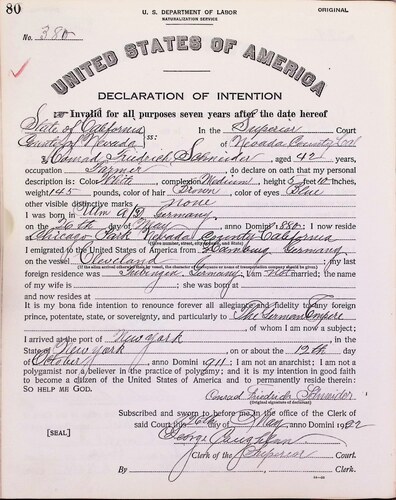 80
U. S. DEPARTMENT OF LABOR
NATURALIZATION SERVICE
ORIGINAL
No. 380
UNITED STATES OF AMERICA
DECLARATION OF INTENTION
Invalid for all purposes seven years after the date hereof
State of California
County of Nevada ss: In the Superior Court
of Nevada County, Cal
I, Conrad Friedrich Schneider, aged 42 years,
occupation Farmer, do declare on oath that my personal
description is: Color White, complexion Medium, height 5 feet 10 inches,
weight 145 pounds, color of hair Brown, color of eyes Blue
other visible distinctive marks none
I was born in Ulm a/D, Germany
on the 26th day of May, anno Domini 1880; I now reside
at Chicago Park Nevada County California
(Give number, street, city or town, and State)
I emigrated to the United States of America from Hamburg Germany
on the vessel Cleveland; my last
(If the alien arrived otherwise than by vessel, the character of conveyance or name of transportation company should be given.)
foreign residence was Germany; I am not married; the name
of my wife is; she was born at
and now resides at
It is my bona fide intention to renounce forever all allegiance and fidelity to any foreign
prince, potentate, state, or sovereignty, and particularly to The German Empire
, of whom I am now a subject;
I arrived at the port of New York, in the
State of New York, on or about the 12th day
of October, anno Domini 1911; I am not an anarchist; I am not a
polygamist nor a believer in the practice of polygamy; and it is my intention in good faith
to become a citizen of the United States of America and to permanently reside therein:
SO HELP ME GOD.
Conrad Friedrich Schneider
(Original signature of declarant)
Subscribed and sworn to before me in the office of the Clerk of
said Court this 26th day of May, anno Domini 1922
[SEAL]
George
Clerk of the Superior Court.
By, Clerk.